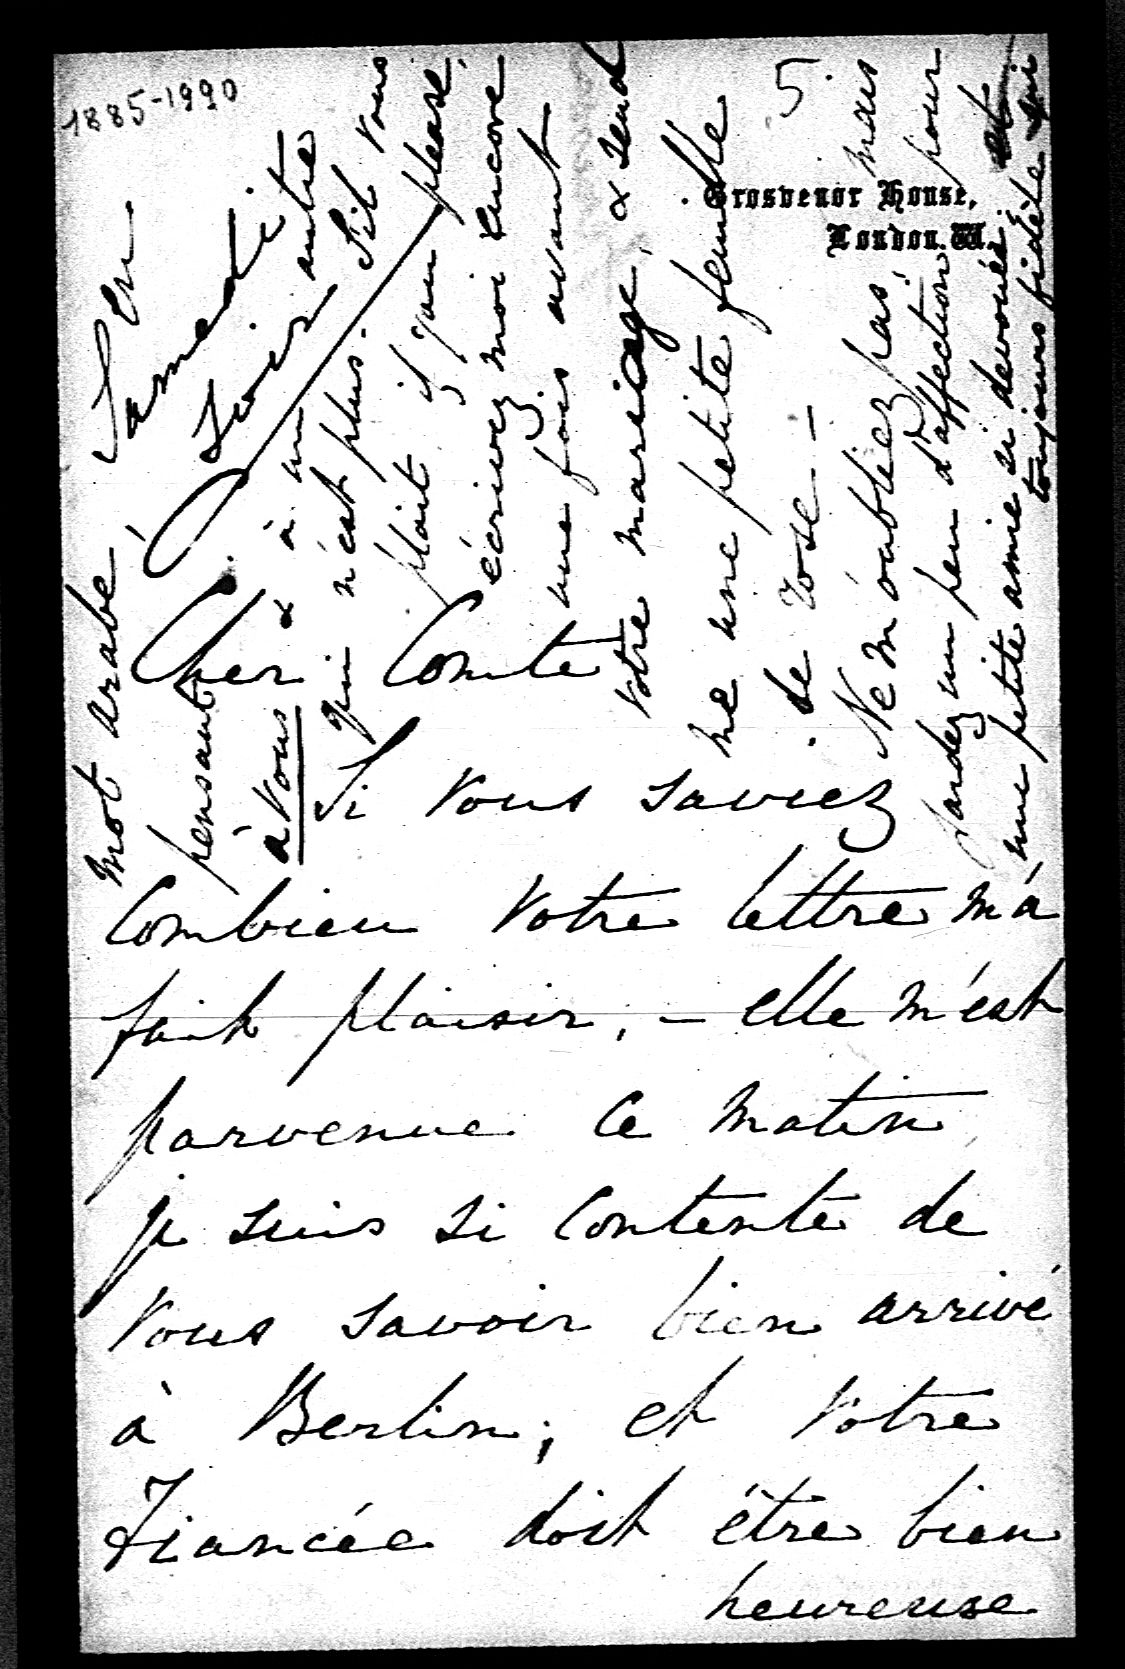 1885-1990
5
Grosvenor House,
London. W.
Samedi
Soir
Cher Comte
Si vous saviez
Combien votre lettre m'a
fait plaisir, – elle m'est
parvenue ce matin
je suis si contente de
vous savoir bien arrivé
à Berlin; et votre
Fiancée doit être bien
heureuse
mot arabe, en
pensant
à vous & à un autre
qui n'est plus. S'il vous
plait if you please,
écrivez moi encore
une fois avant
votre mariage, & send
me une petite feuille
de rose –
Ne m'oubliez pas, mais
gardez un peu d'affection pour
une petite amie si devouée
toujours fidèle